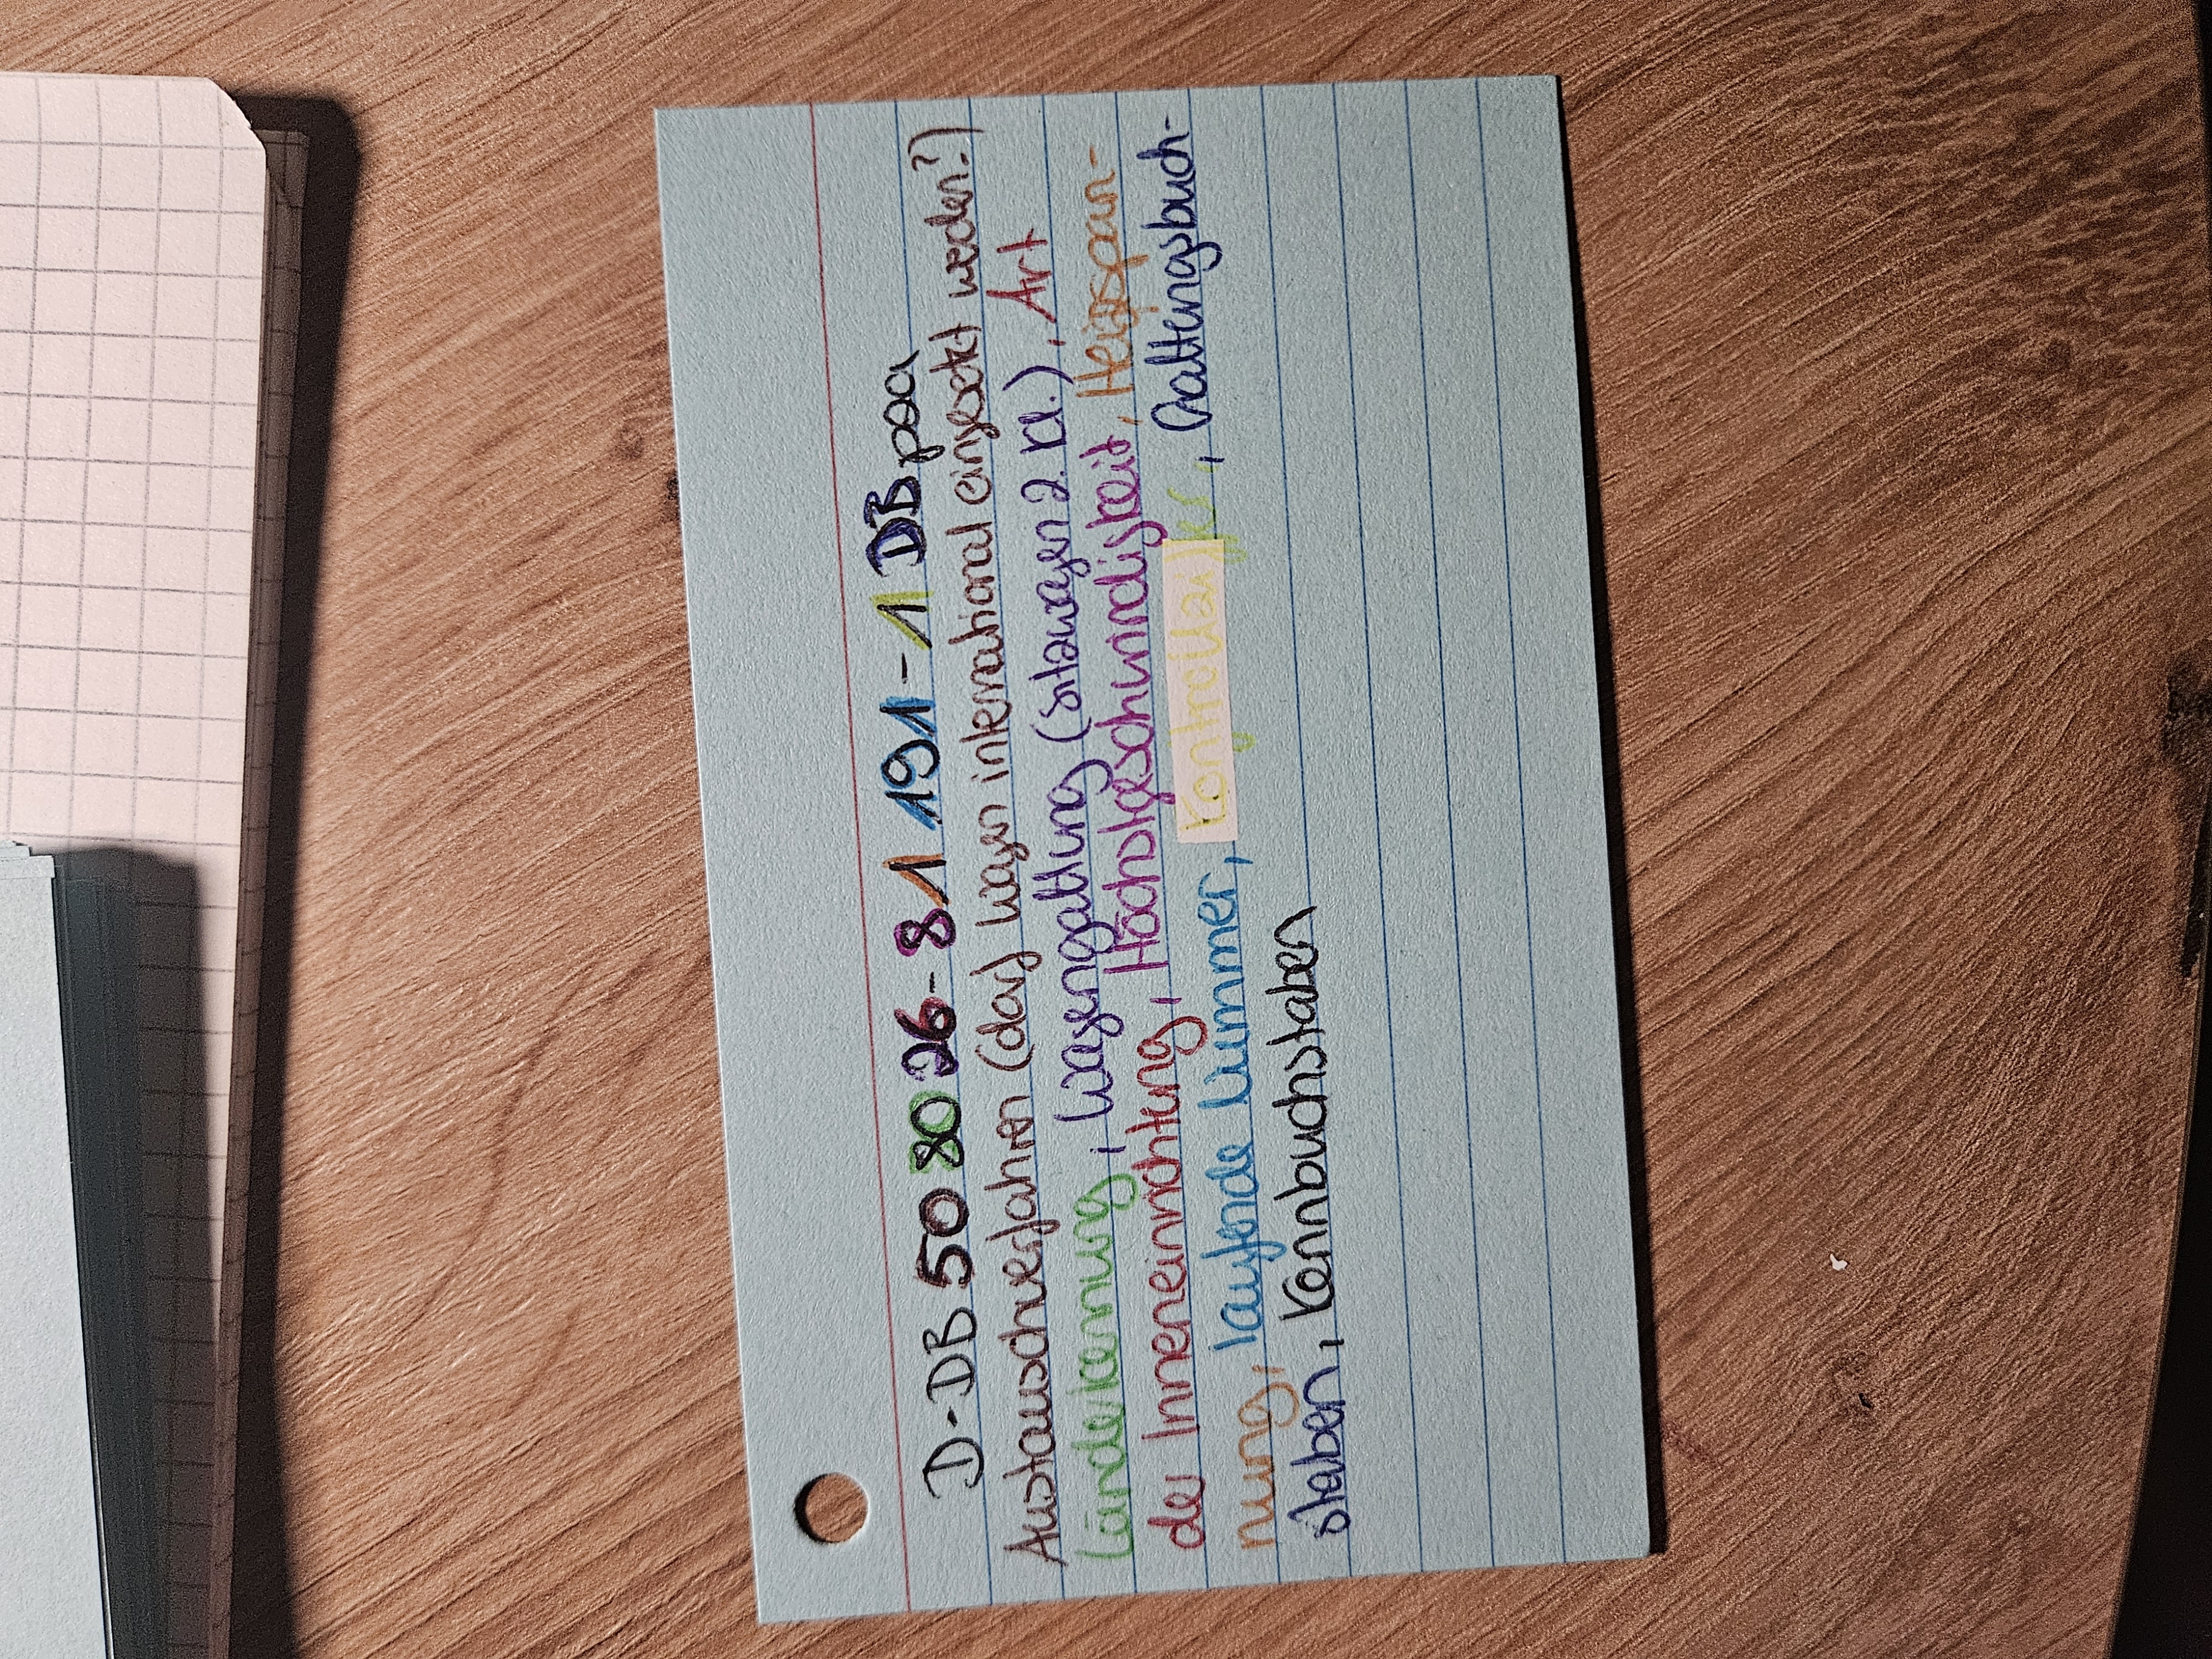 D-DB 50 80 26-81 191-1 DBpza
Austauschverfahren (darf Wagen international eingesetzt werden?)
Länderkennung, Wagengattung (Sitzwagen 2. Kl.), Art
der Inneneinrichtung, Höchstgeschwindigkeit, Heizspan-
nung, laufende Nummer, Kontrollziffer, Gattungsbuch-
staben, Kennbuchstaben